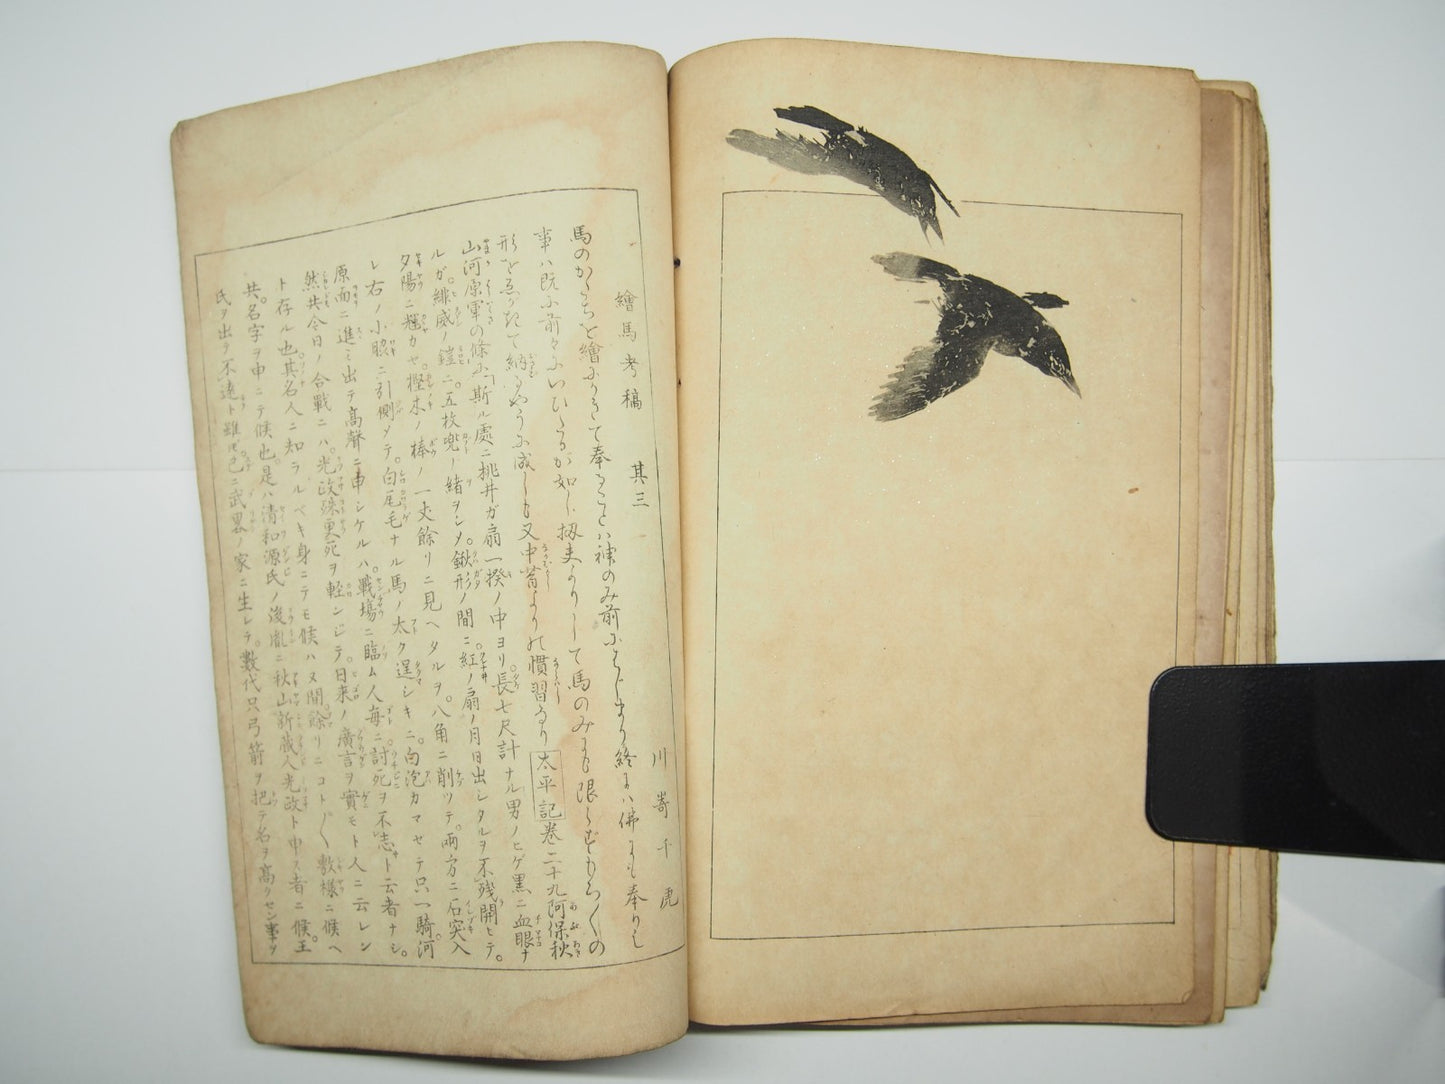 繪馬考稿 其三
川嵜千虎
馬のかたちを繪にかきて奉ることハ神のみ前にはじまり終にハ佛にも奉りし
事ハ既に前々にいひたるが如し扨夫よりして馬のみにも限らずもろ〳〵の
形を画がきて納るやうに成しも又中昔よりの慣習なり太平記卷二十九阿保秋
山河原軍の條に「斯ル處ニ桃井ガ扇一揆ノ中ヨリ長七尺計ナル男ノヒゲ黒ニ血眼ナ
ルガ。緋威ノ鎧ニ五枚兜ノ緒ヲシメ。鍬形ノ間ニ紅ノ扇ノ月日出シタルヲ不殘開ヒテ。
夕陽ニ輝カセ。樫木ノ棒ノ一丈餘リニ見ヘタルヲ。八角ニ削ツテ。兩方ニ石突入
レ右ノ小脇ニ引側メテ。白尾毛ナル馬ノ太ク逞シキニ。白泡カマセテ只一騎河
原面ニ進ミ出テ高聲ニ申シケルハ。戰場ニ臨ム人毎ニ討死ヲ不志ト云者ナシ。
然共今日ノ合戰ニハ。光政殊更死ヲ輕ンジテ。日来ノ廣言ヲ實モト人ニ云レン
ト存ル也其名人ニ知ラルベキ身ニテモ候ハヌ間。餘リニコト〴〵敷樣ニ候ヘ
共。名字ヲ申ニテ候也是ハ清和源氏ノ後胤ニ秋山新蔵人光政ト申ス者ニ候。王
氏ヲ出テ不遠ト雖ドモ。已ニ武畧ノ家ニ生レテ。數代只弓箭ヲ把テ名ヲ高クセン事ヲ